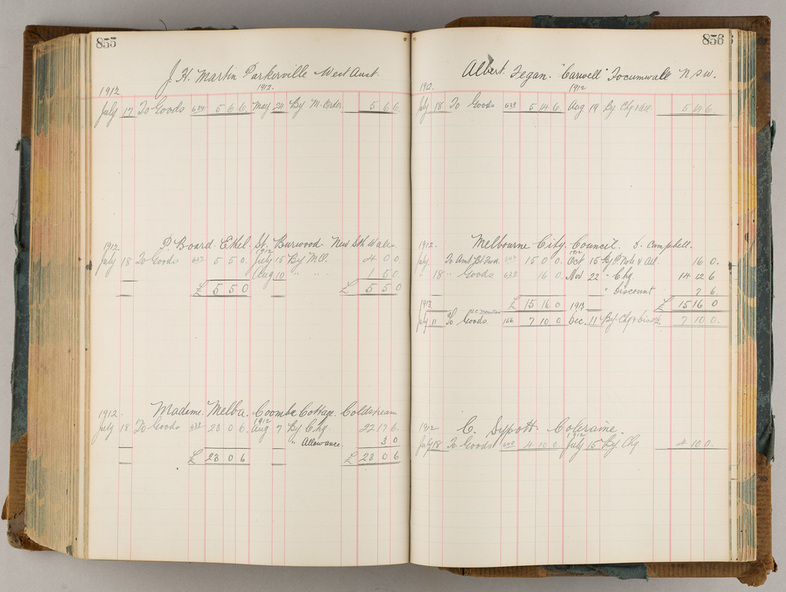 855
J. H. Martin Parkerville West Aust.
1912 1912
July 17 To Goods 5 6 6 Aug 20 By M. Order 5 6 6
P. Board Ethel St. Burwood New Sth Wales
1912 1912
July 18 To Goods 632 5 5 0 July 15 By M.O. 4 0 0
Aug 10 " " 1 5 0
£ 5 5 0 £ 5 5 0
Madame Melba. Coombe Cottage. Coldstream
1912 1912
July 18 To Goods 632 23 0 6 Aug 7 By Chq 22 17 6
" Allowance 3 0
£ 23 0 6 £ 23 0 6
856
Albert Fegan. "Carwell" Tocumwall N.S.W.
1912 1912
July 18 To Goods 632 5 14 6 Aug 19 By Chq 5 14 6
Melbourne City Council. Campbell.
1912 1912
July To Amt Fwd 15 0 0 Oct 15 By P Note 16 0
" 18 " Goods 632 16 0 Nov 22 " Chq 14 12 6
" Discount 7 6
1913 £ 15 16 0 1913 £ 15 16 0
July 11 To Goods 7 10 0 Dec. 11 By Chq & Disct 7 10 0
C. Sypott. Coleraine.
1912 1912
July 18 To Goods 632 4 10 0 July 15 By Chq 4 10 0